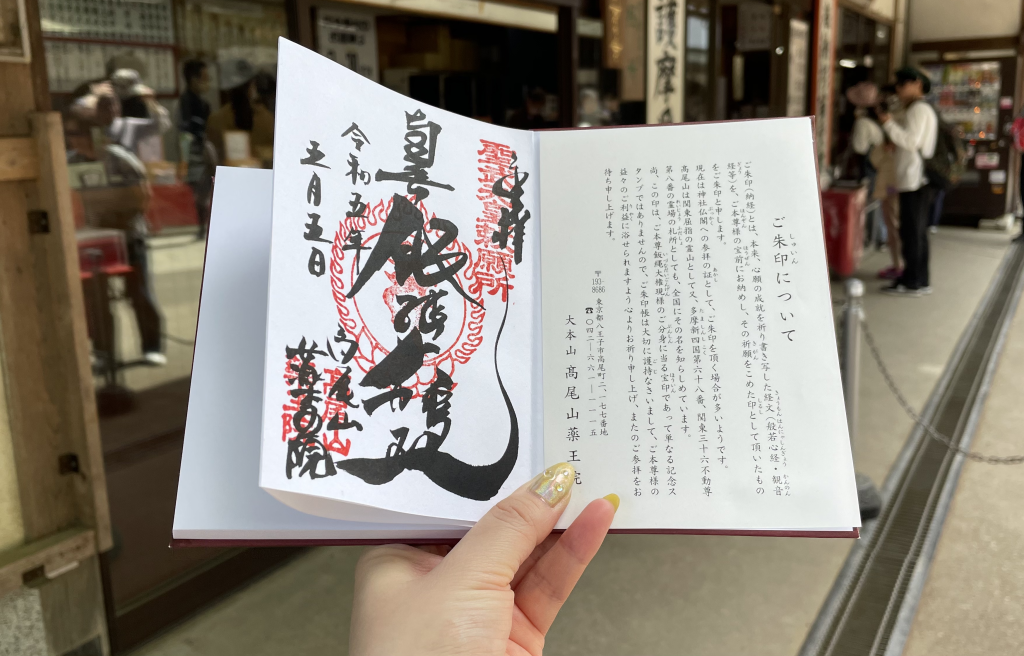 ご朱印について
ご朱印(納経)とは、本来、心願の成就を祈り書き写した経文(般若心経・観音
経等)を、ご本尊様の宝前にお納めし、その祈願をこめた印として頂いたもの
をご朱印と申します。
現在は神社仏閣への参拝の証として、ご朱印を頂く場合が多いようです。
髙尾山は関東屈指の霊山として又、多摩新四国第六十八番、関東三十六不動尊
第八番の霊場の札所としても、全国にその名を知らしめています。
尚、この印は、ご本尊飯縄大権現様のご分身に当る宝印であって単なる記念ス
タンプではありませんので、ご朱印帳は大切に護持なさいまして、ご本尊様の
益々のご利益に浴せられますよう心よりお祈り申し上げ、またのご参拝をお
待ち申し上げます。
〒193-8686 東京都八王子市高尾町二、一七七番地
☎〇四二―六六一―一一一五
大本山髙尾山薬王院
奉拝
聖武天皇勅願所
飯縄大権現
令和五年
五月五日
高尾山
薬王院
護摩